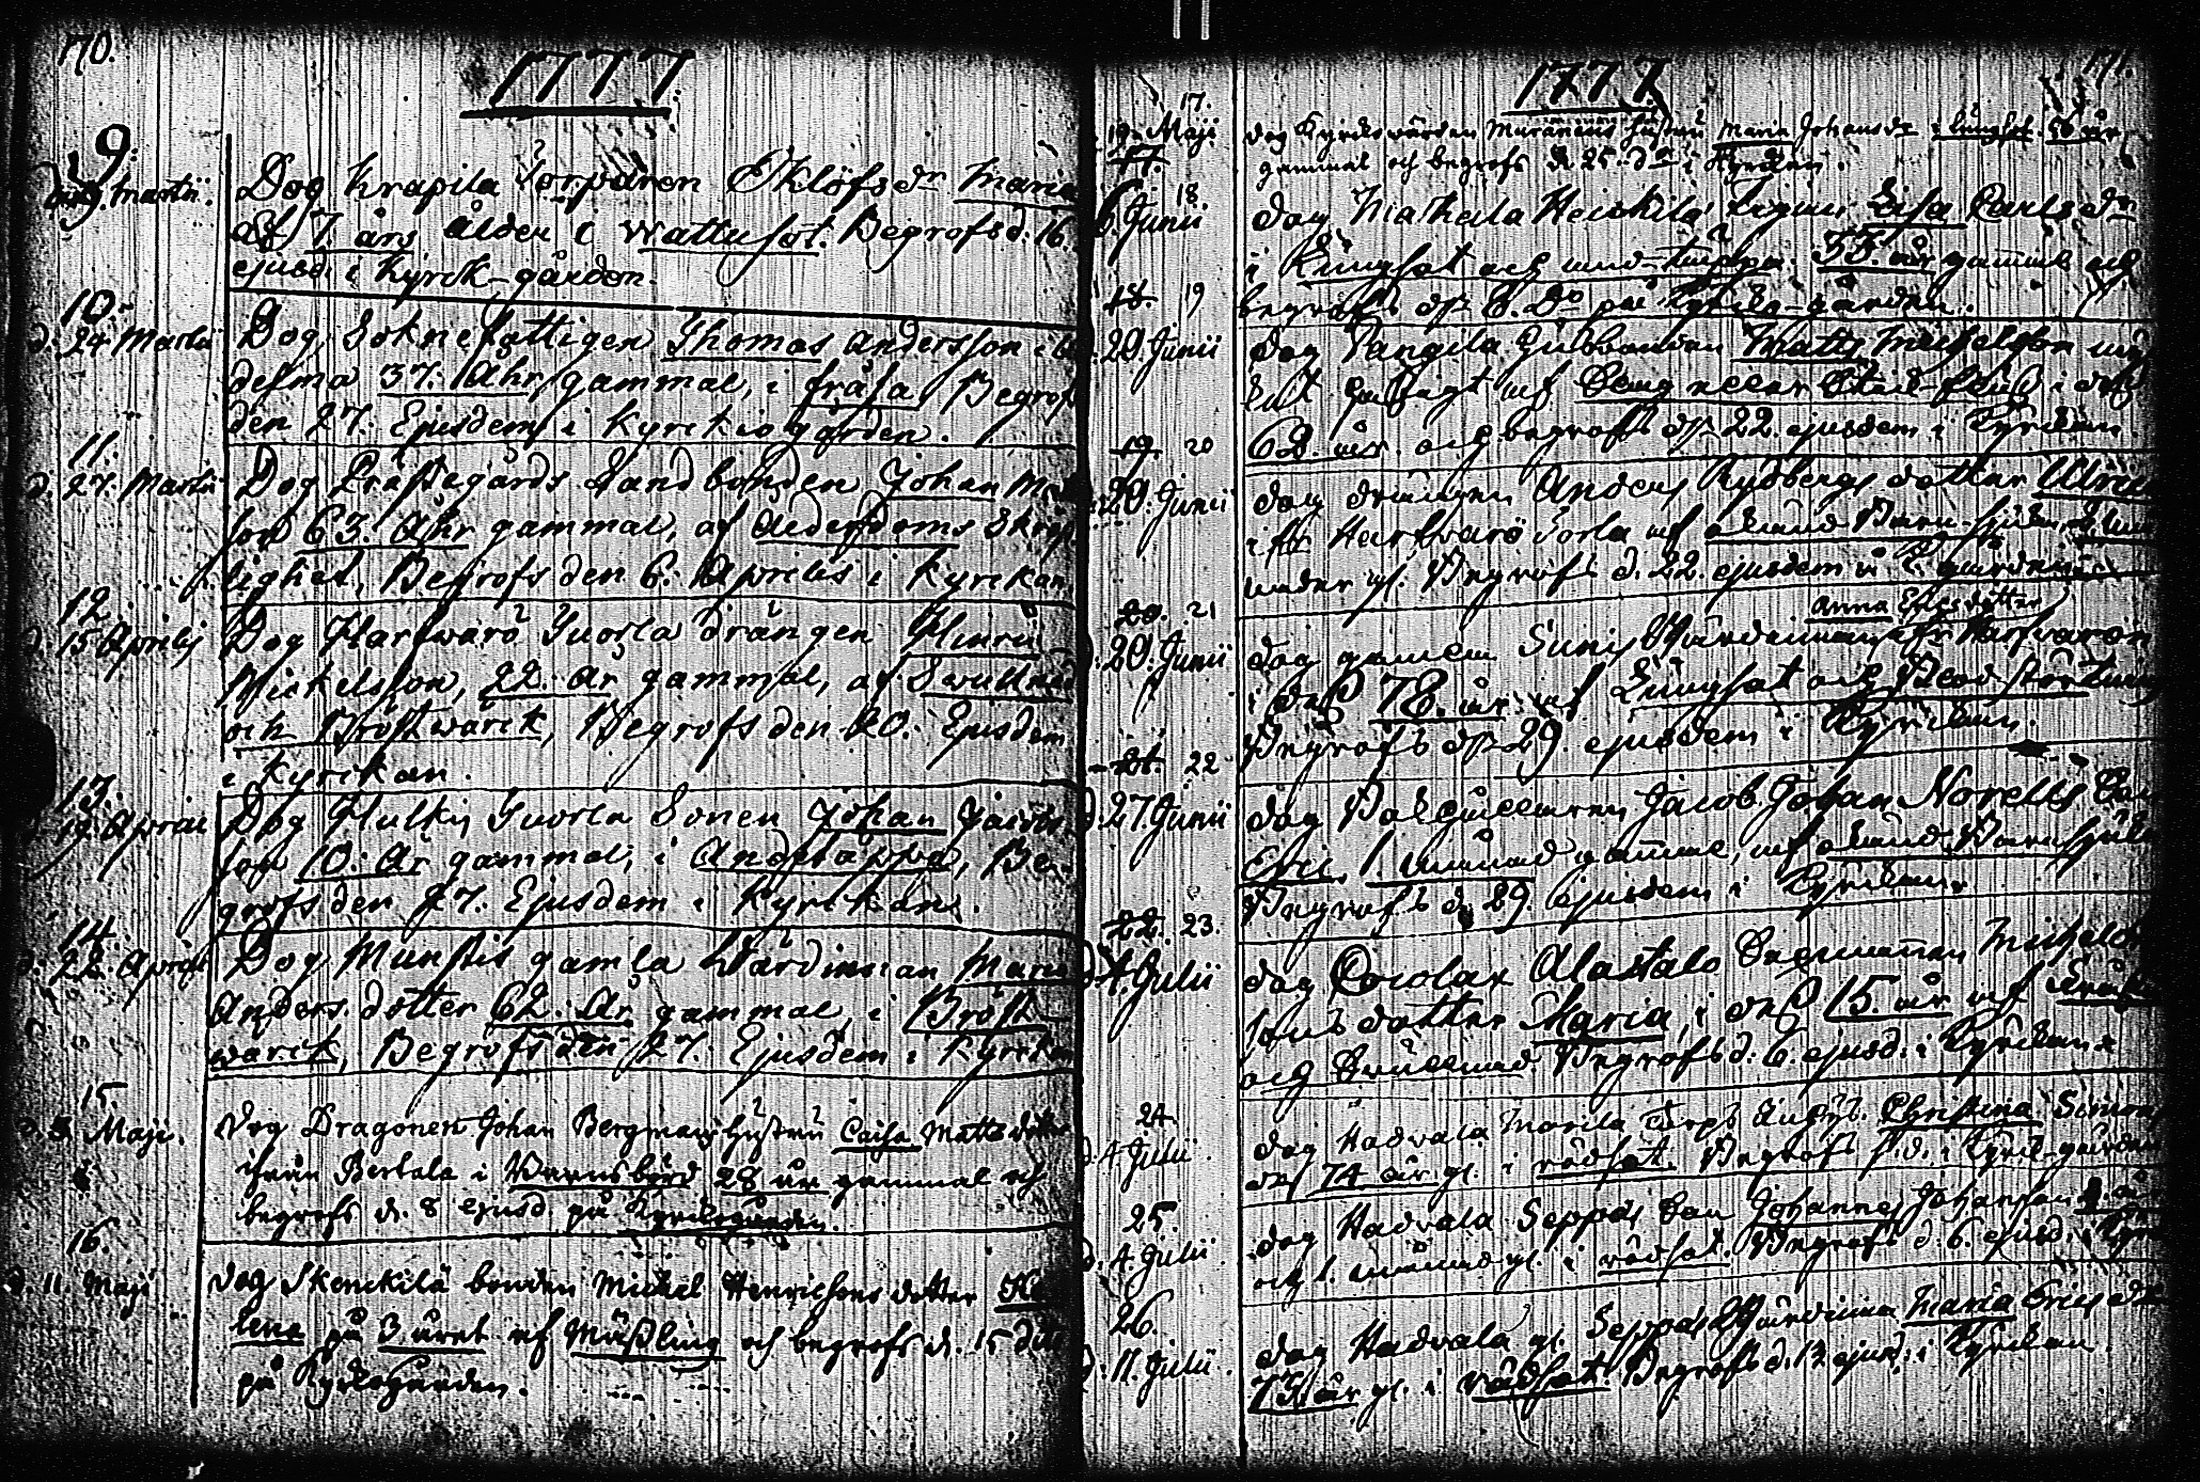 170.
1777.
9.
d. 9. Martii. Dog Krapila Torparen Eklöfs dr Maria
af 7. års ålder i Wattusot. Begrofs d. 16.
ejusd. i Kyrck-gården.
10.
d. 24. Martii Dog Soknefattigen Thomas Andersson i
desma 37. Åhr gammal, i fråsa, Begrofs
den 27. Ejusdem i Kyrckiogården.
11.
d. 27. Martii Dog Prästegårds Landbonden Johan
son 63. Åhr gammal, af Ålderdoms Skröp
lighet, Begrofs den 6. Aprilis i Kyrckan
12.
d. 15 Aprilis Dog Harfwarö Juorla drängen Hinric
Mickelsson, 22. År gammal, af Swullnad
och Bröstwärck, Begrofs den 20. Ejusdem
i Kyrckan.
13.
19. Aprill Dog Hulkis Juorla Sonen Johan Jacobs
son 10. År gammal, i Andtäppa, Be-
grofs den 27. Ejusdem i Kyrckan.
14.
d. 22. April Dog Munstis gamla Wärdinnan Maria
Anders dotter 62. År gammal, i Bröst
wärck, Begrofs den 27. Ejusdem i Kyrckan
15.
d. 3 Maji. Dog Dragonen Johan Bergmans hustru Caisa Matts dotter
ifrån Bertala i Barnsbörd 28 år gammal och
begrofs d. 8 ejusd. på Kyrckogården.
16.
d. 11. Maji Dog Skenckilä bonden Mickel Henrichsons dotter He
lena på 3 året af Mäßling och begrofs d. 15 dito
på Kyrkogården.
171.
1777.
17.
19. Maji Dog Kyrckowärden Muranens hustru Maria Johansdr i Lungsot. 56 år
17. gammal och begrofs d. 25. do i Kyrckan.
18.
6. Junii Dog Mathala Heickilä Lisa Carls dr
i Lungsot och 55. år gammal och
18. 19 begrofs d. 8. do på Kyrcko-gården.
d. 20. Junii Dog Pangila Gulbonden Matts Michelsson
af i deß
19 20 68. år och begrofs d. 22. ejusdem i Kyrckan.
d. 20. Junii Dog drängen Anders Rydbergs dotter Ulrica
ifr. Harfwarö Jorla af okänd Barn-siukdom
under gl. Begrofs d. 22. ejusdem å K. gården
20. 21 Anna Ericsdotter
d. 20. Junii Dog gamla Sunis Wärdinnan ifr. Harfwarön
i deß 78. år af Lungsot och Blodstörtning
Begrofs d. 29. ejusdem i Kyrckan.
21. 22
d. 27. Junii Dog Jacob Johan Norells Son
Eric, 1. månad gammal, af okänd Barnsjuk
Begrofs d. 29. ejusdem i Kyrckan.
22. 23.
d. 4. Julii Dog Cocolax Alastalo Michels
sons dotter Maria, i deß 15. år af
och Swullnad Begrofs d. 6. ejusd. i Kyrckan
24
d. 4. Julii Dog Hadvala Marila Torps Christina Simons
dr 74 år gl. i rödsot. Begrofs s. d. i Kyrck-gården
25.
d. 4. Julii Dog Hadvala Seppäs Son Johannes Johansson
och 1. månad gl. i rödsot. Begrofs d. 6. ejusd. i Kyrc
26.
d. 11. Julii. Dog Hadvala gl. Seppäs Wärdinna Maria Erics dr
73 år gl. i rödsot Begrofs d. 13 ejusd. i Kyrckan.